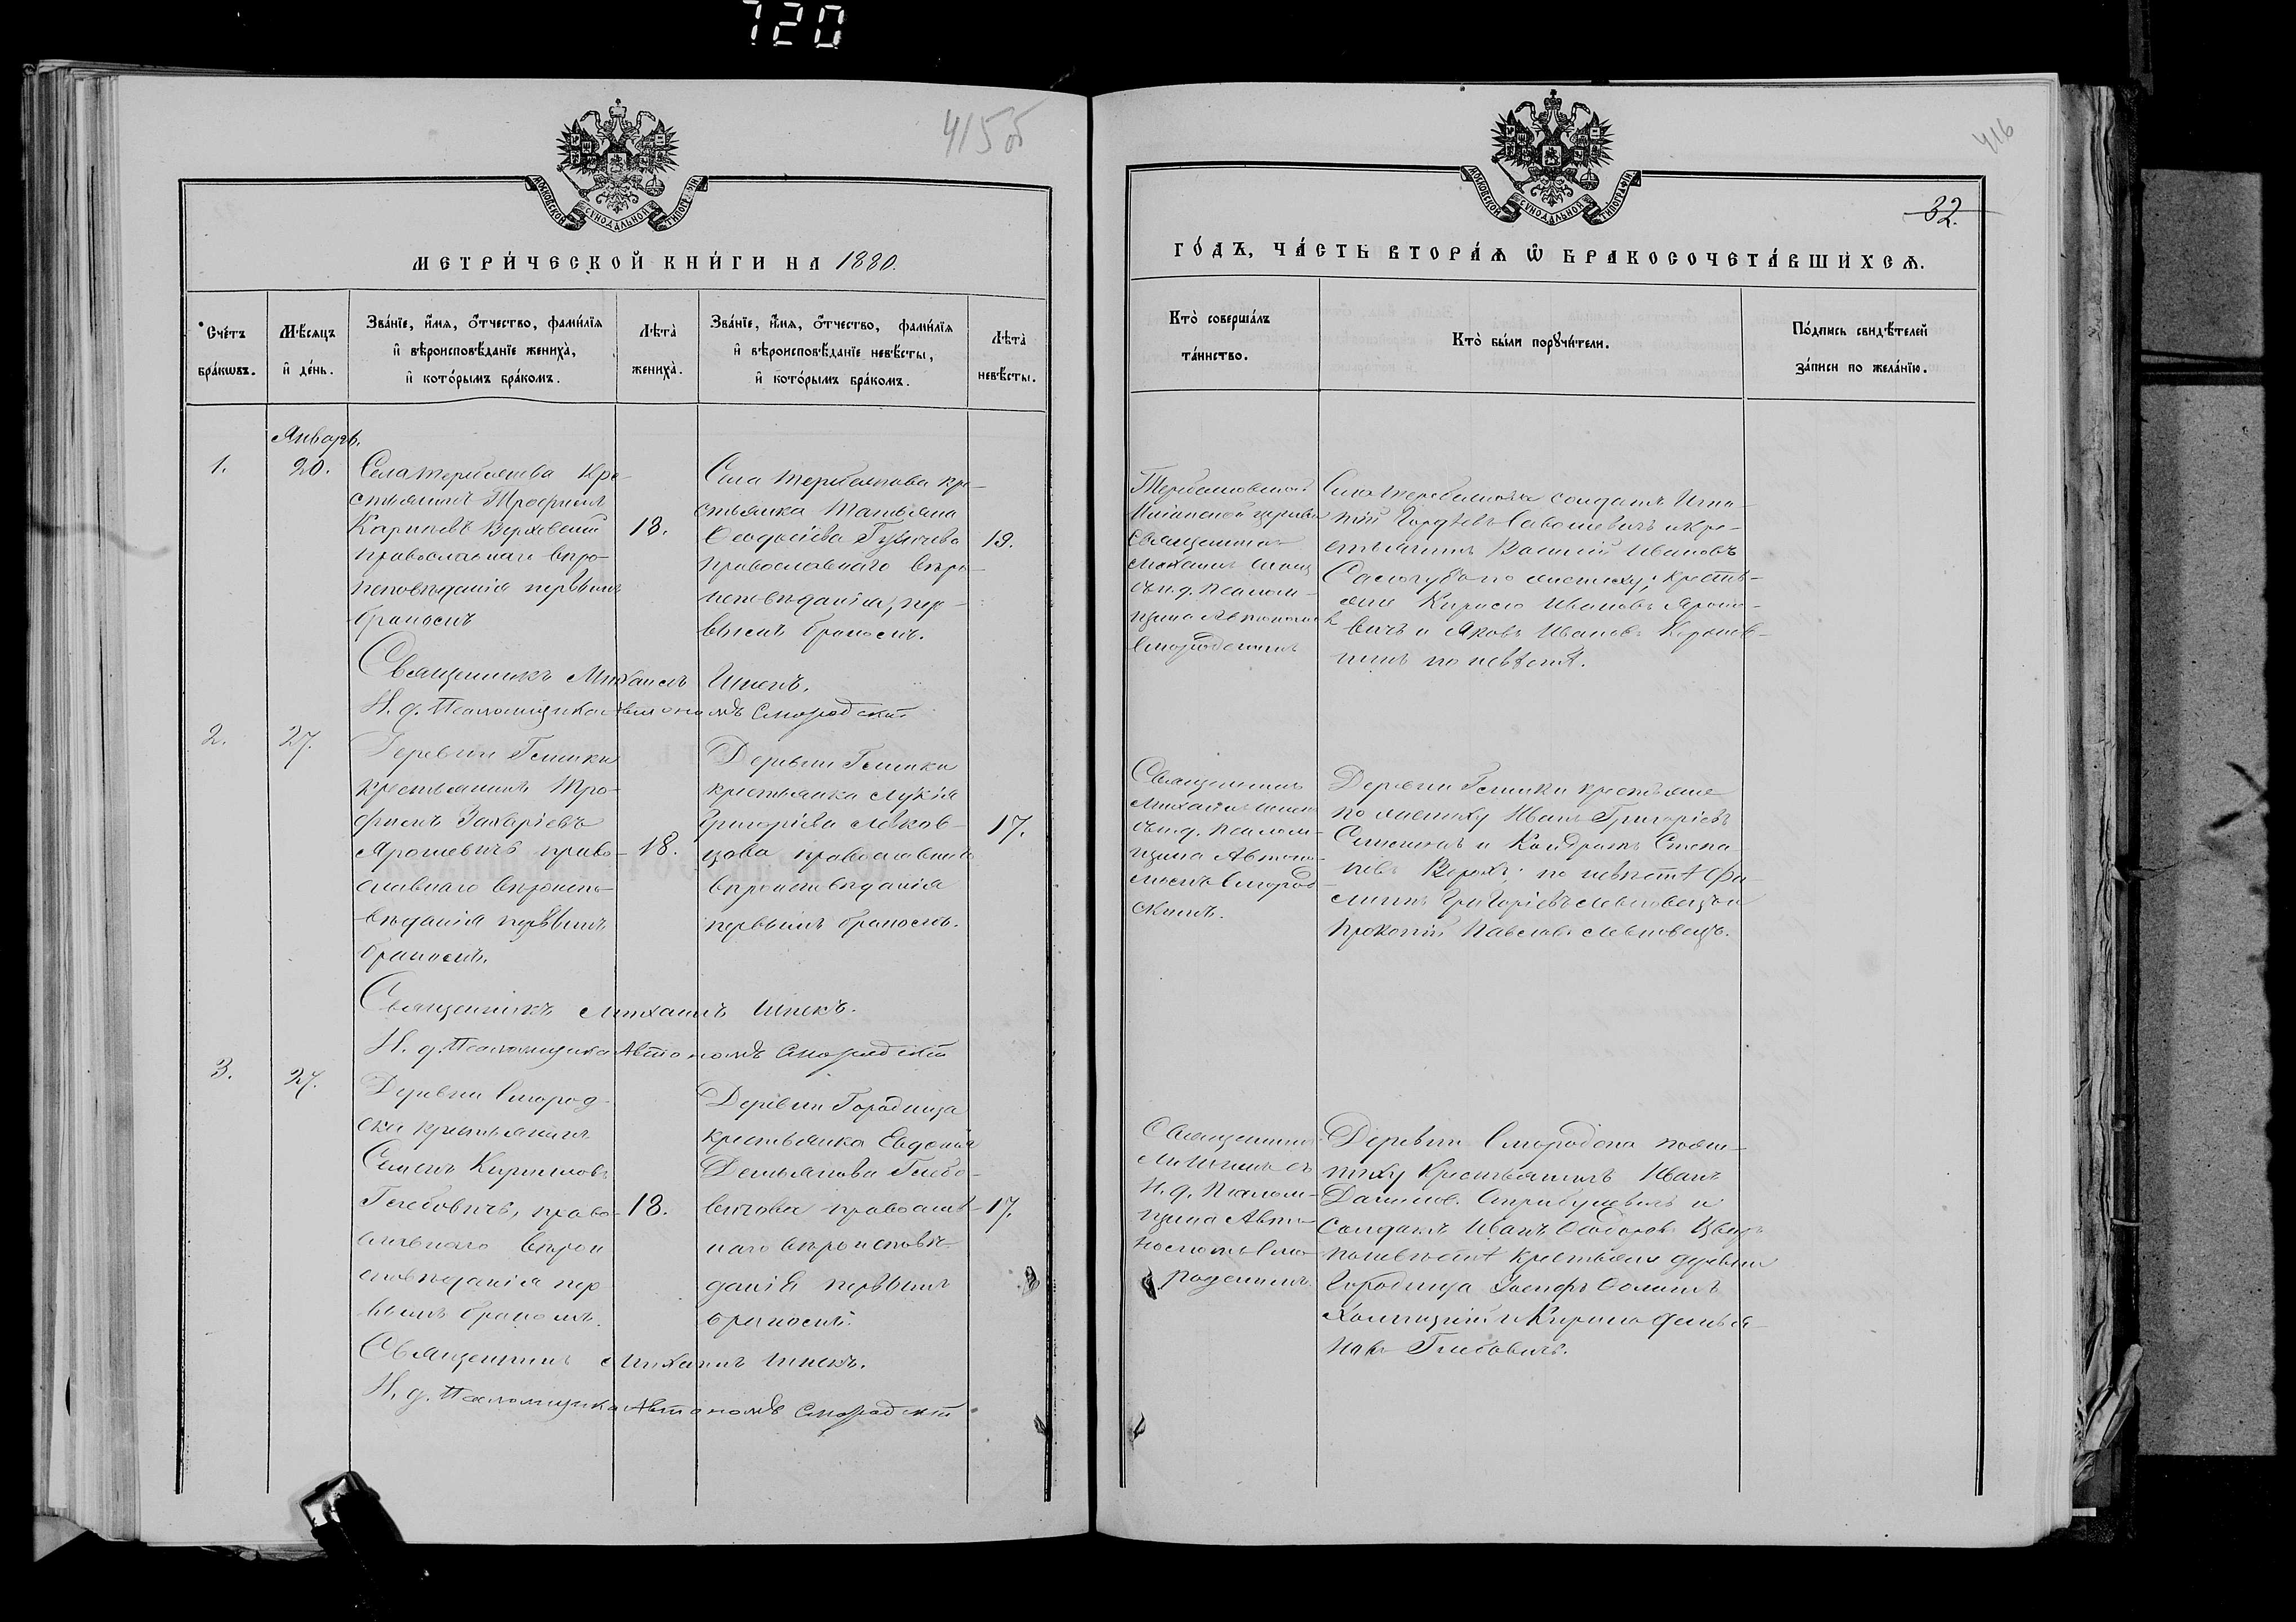 720
415б
416
32.
МОСКОВСКОЙ СѴНОДАЛЬНОЙ ТИПОГРАФІИ
МЕТРИ́ЧЕСКОЙ КНИ́ГИ НА 1880.
Сче́тъ бра́кѡвъ.
Мѣ́сяцъ и҆ де́нь.
Зва́нїе, и҆́мя, ѻ҆́тчество, фами́лїя
и҆ вѣроисповѣ́данїе жениха̀,
и҆ кото́рымъ бра́комъ.
Лѣта̀ жениха̀.
Зва́нїе, и҆́мя, ѻ҆́тчество, фами́лїя
и҆ вѣроисповѣ́данїе невѣ́сты,
и҆ кото́рымъ бра́комъ.
Лѣта̀ невѣ́сты.
Январь.
1.
20.
Села Теребежова Кре-
стьянинъ Трофимъ
Карповъ Верховский
православнаго вѣро-
исповѣданія первымъ
бракомъ
18.
Села Теребежова кре-
стьянка Татьяна
Феодосіева
православнаго вѣро-
исповѣданія, пер-
вымъ бракомъ.
19.
Священникъ Михаилъ Шпекъ.
И. д. Псаломщика Автономъ Смородскій
2.
27.
Деревни
крестьянинъ Тро-
фимъ Захаріевъ
Ярошевичъ право-
славнаго вѣроиспо-
вѣданія первымъ
бракомъ.
18.
Деревни
крестьянка Лукія
Григоріева Левков-
цова православнаго
вѣроисповѣданія
первымъ бракомъ.
17.
Священникъ Михаилъ Шпекъ.
И. д. Псаломщика Автономъ Смородскій
3.
27.
Деревни Смород-
ска крестьянинъ
Семенъ Кирилловъ
Глебовичъ, право-
славнаго вѣрои
сповѣданія пер
вымъ бракомъ.
18.
Деревни Городища
крестьянка Евдокія
Демьянова Глебо-
вичова православ-
наго вѣроисповѣ-
данія первымъ
бракомъ.
17.
Священникъ Михаилъ Шпекъ.
И. д. Псаломщика Автономъ Смородскій
МОСКОВСКОЙ СѴНОДАЛЬНОЙ ТИПОГРАФІИ
ГО́ДЪ, ЧА́СТЬ ВТОРА́Я Ѡ҆ БРАКОСОЧЕТА́ВШИХСЯ.
Кто̀ соверша́лъ та́инство.
Кто̀ бы́ли порꙋчи́тели.
По́дпись свидѣ́телей
за́писи по жела́нїю.
церкви
Священникъ
Михаилъ Шпекъ
съ и. д. псалом-
щика Автономомъ
Смородскимъ
Села Теребежова солдатъ Игна-
тій Гордѣевъ Савошевичъ и кре-
стьянинъ Василій Ивановъ
по жениху; крестья-
яне Кирило Ивановъ Яроше-
вичъ и Яковъ Ивановъ
по невѣстѣ.
Священникъ
Михаилъ Шпекъ
съ и. д. псалом-
щика Автоно-
момъ Смород-
скимъ.
Деревни крестьяне
по жениху Иванъ Григоріевъ
и Кондратъ Степа-
новъ по невѣстѣ Фи-
липпъ Григоріевъ Левковецъ и
Прокопій Павловъ Левковецъ.
Священникъ
Михаилъ съ
и. д. псалом-
щика Авто-
номомъ Смо-
родскимъ
Деревни Смородска по же-
ниху крестьянинъ Иванъ
Даниловъ и
солдатъ Иванъ Феодоровъ
по невѣстѣ крестьяне деревни
Городища Іосифъ
и Кирило Демья-
новъ Глебовичъ.